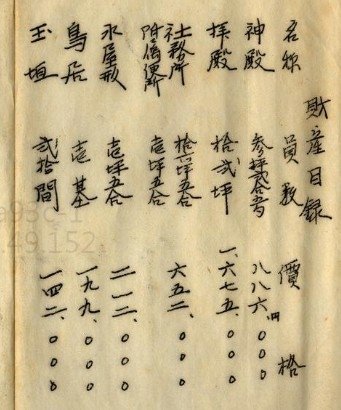 財産目録
名称 員数 價格
神殿 参坪弐合 八八六、円〇〇〇
拝殿 拾弐坪 一、六七五、〇〇〇
社務所 坪五合 六五二、〇〇〇
附属便所 壱坪五合
水屋形 壱坪五合 二一二、〇〇〇
鳥居 壱基 一九九、〇〇〇
玉垣 弐拾間 一四二、〇〇〇
.49.152